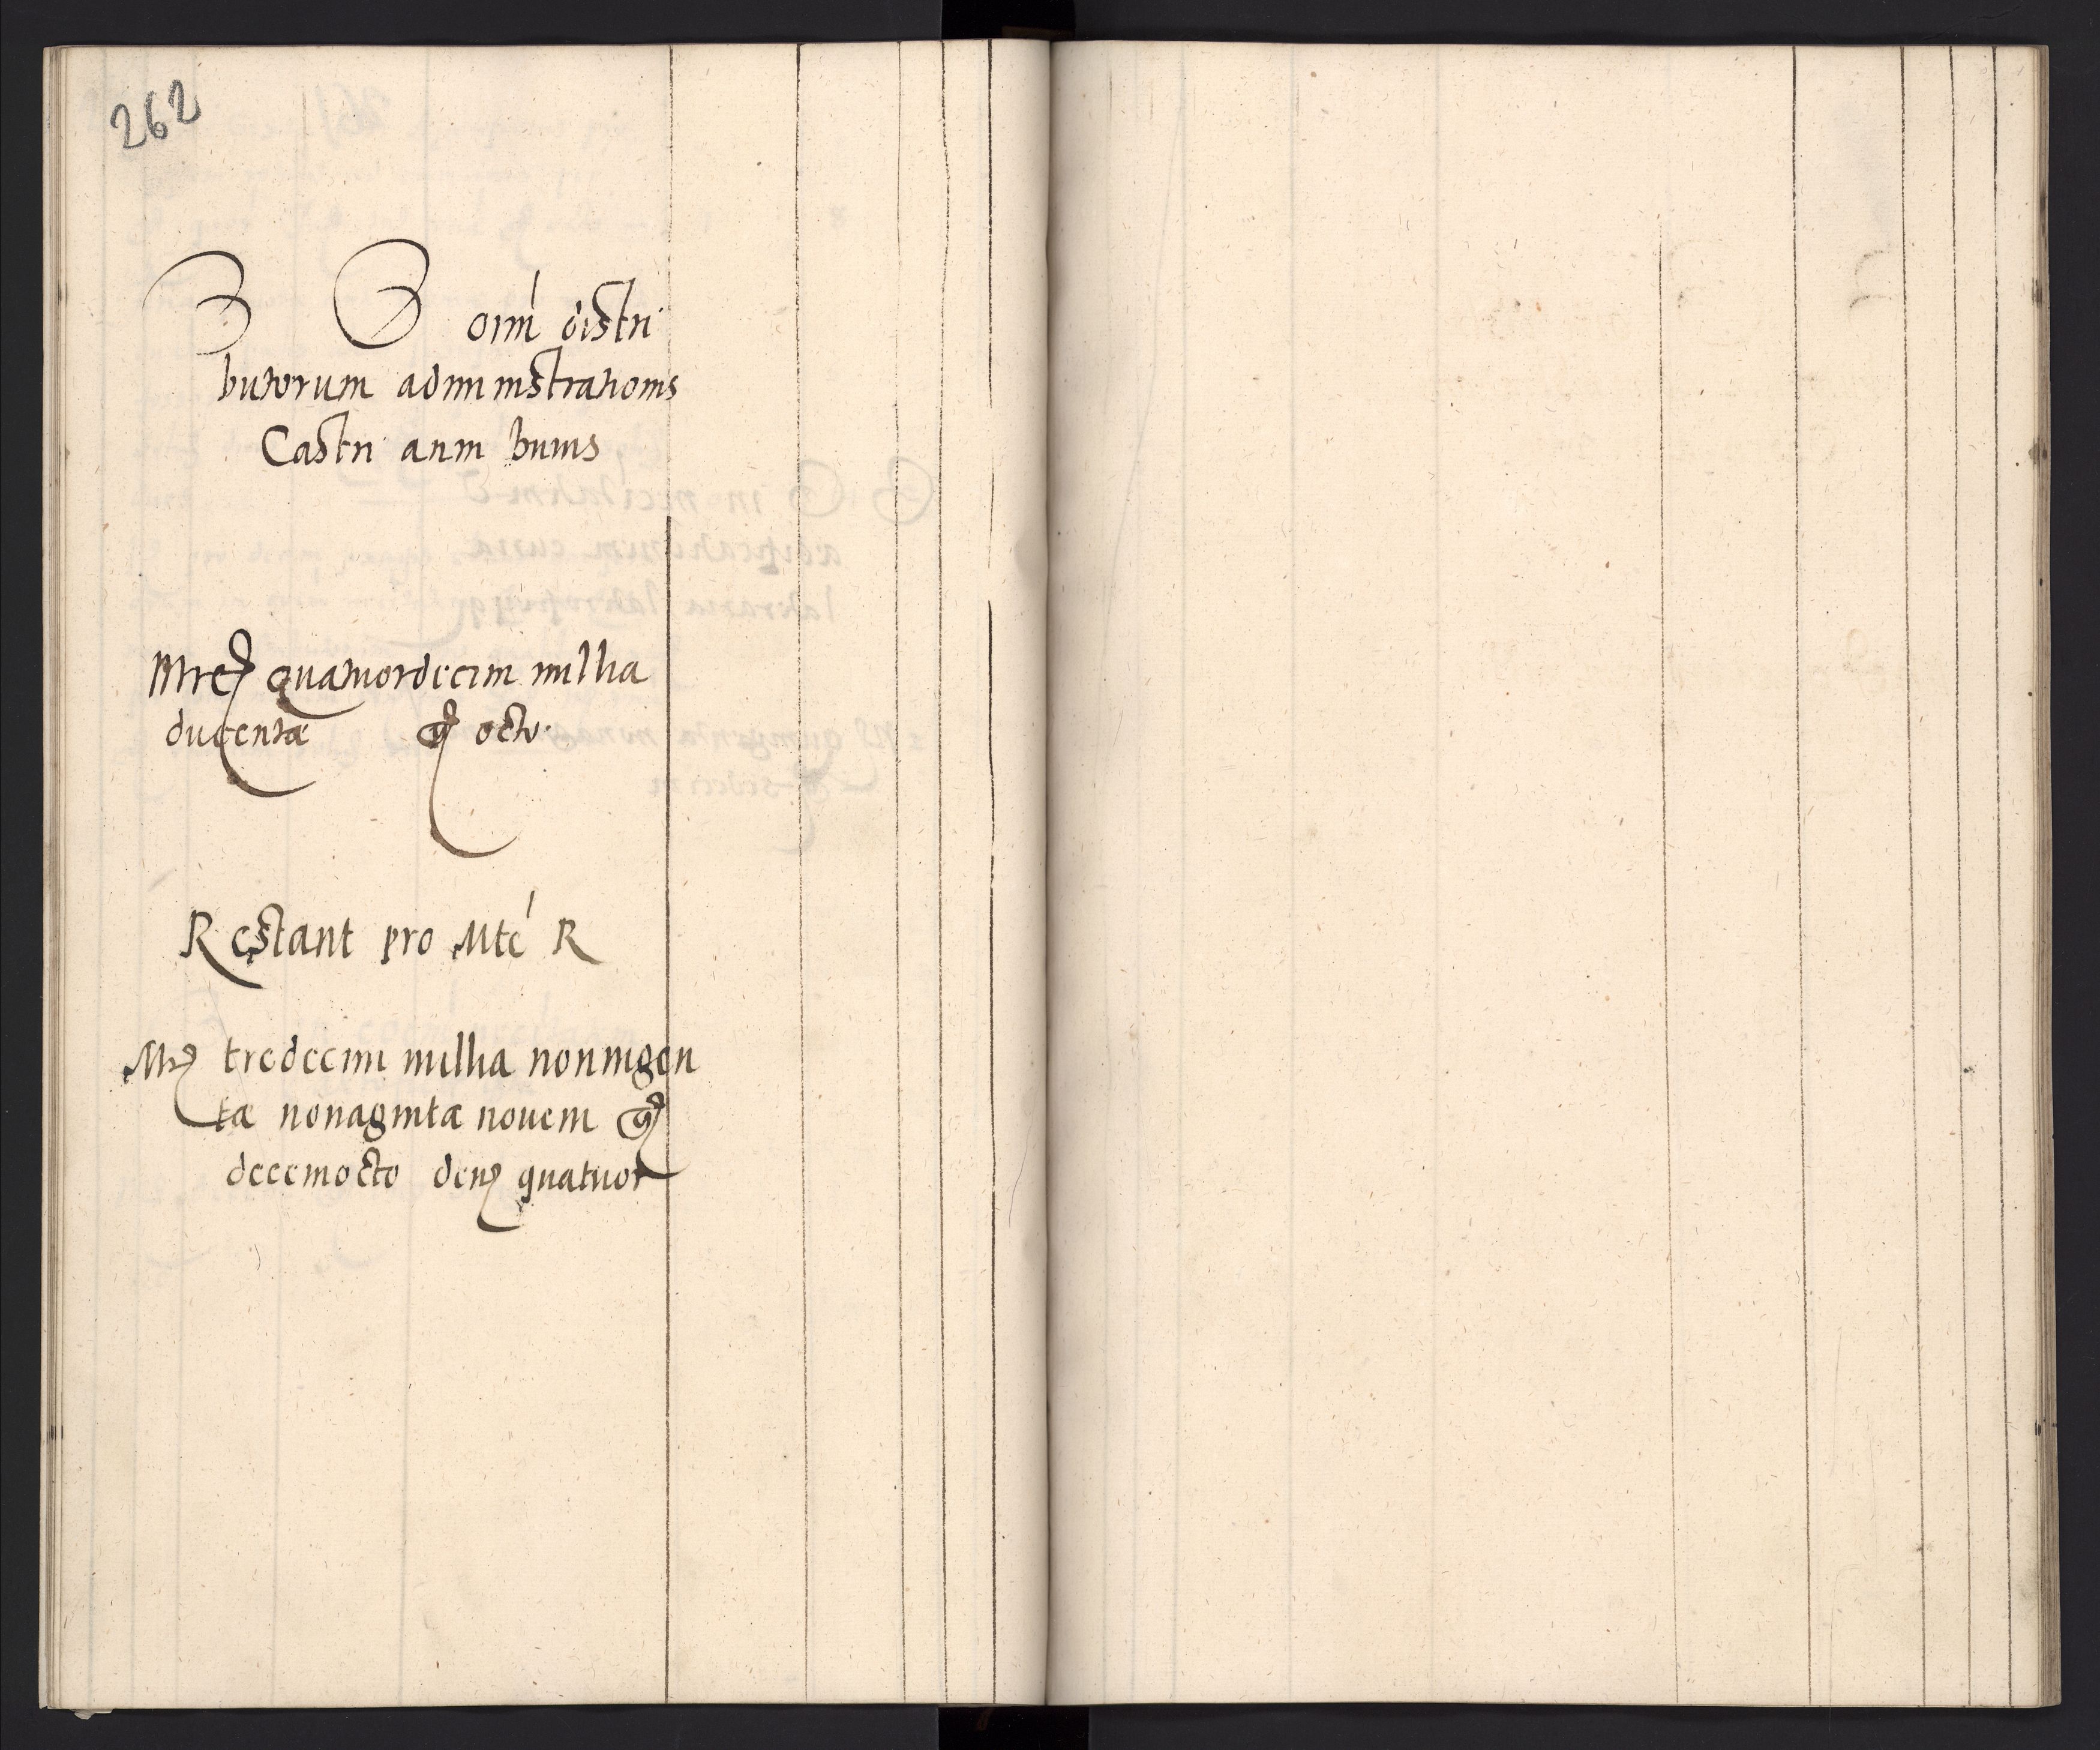 262
omi distri
butorum administrationis
Castri anni huius
Mrc quatuordecim millia
ducenta g octo
Restant pro Mte R
Mrc tredecim millia noningen
ta nonaginta novem g
decemocto den quatuor